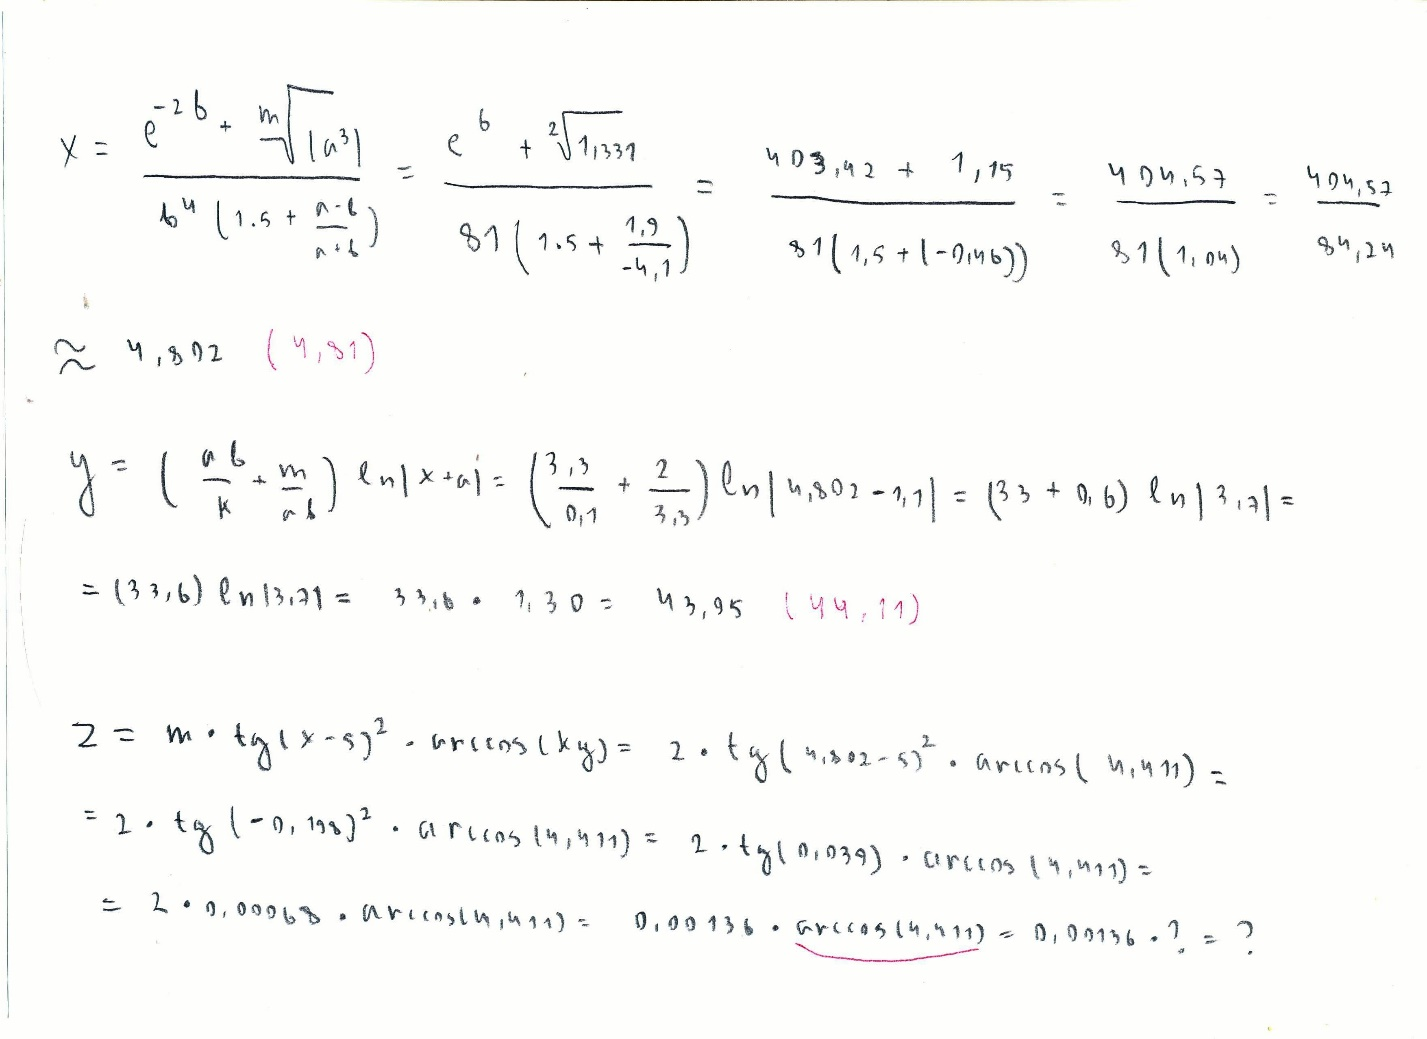 x = (e^(-2b) + ^m√|a³|) / (b⁴(1.5 + (a-b)/(a+b))) = (e⁶ + ²√1,331) / (81(1.5 + 1,9/(-4,1))) = (403,42 + 1,15) / (81(1,5 + (-0,46))) = 404,57 / 81(1,04) = 404,57 / 84,24
≈ 4,802 (4,81)
y = (ab/k + m/ab) ln|x+a| = (3,3/0,1 + 2/3,3) ln|4,802 - 1,1| = (33 + 0,6) ln|3,7| =
= (33,6) ln|3,7| = 33,6 • 1,30 = 43,95 (44,11)
z = m • tg(x-5)² • arccos(ky) = 2 • tg(4,802-5)² • arccos(4,411) =
= 2 • tg(-0,198)² • arccos(4,411) = 2 • tg(0,039) • arccos(4,411) =
= 2 • 0,00068 • arccos(4,411) = 0,00136 • arccos(4,411) = 0,00136 • ? = ?